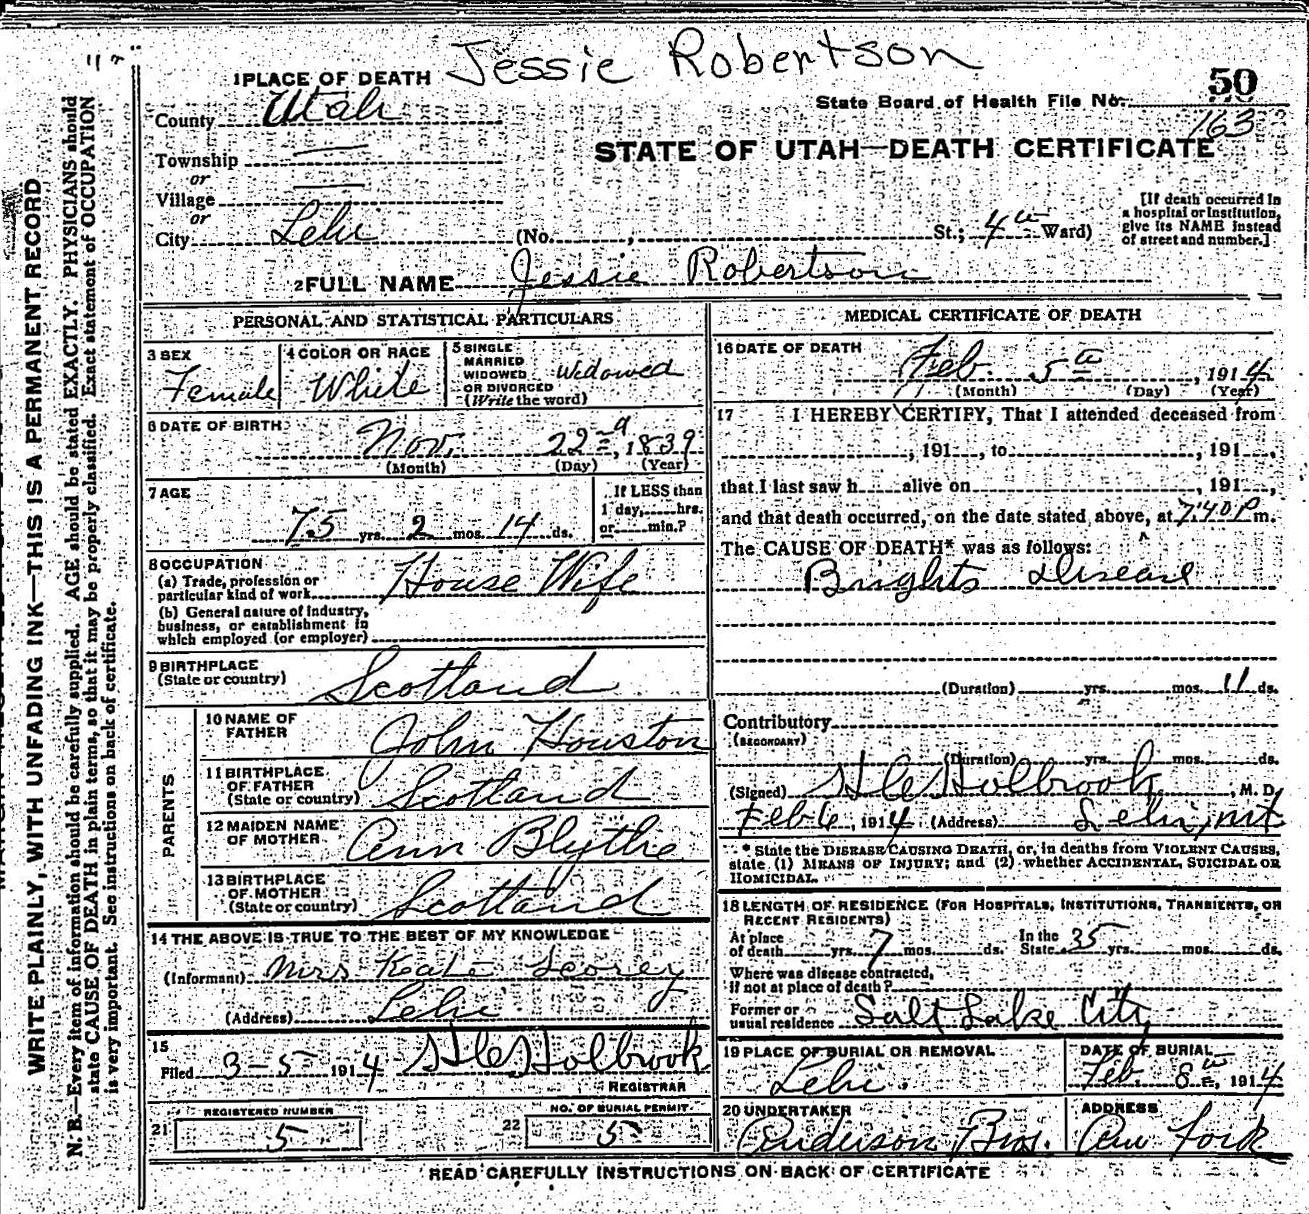 Jessie Robertson
1 PLACE OF DEATH
50
State Board of Health File No.
163
County Utah
STATE OF UTAH—DEATH CERTIFICATE
Township
or
Village
or
City Lehi (No. , St.; 4th Ward)
[If death occurred in
a hospital or institution,
give its NAME instead
of street and number.]
2 FULL NAME Jessie Robertson
PERSONAL AND STATISTICAL PARTICULARS
3 SEX
Female
4 COLOR OR RACE
White
5 SINGLE
MARRIED
WIDOWED
OR DIVORCED
(Write the word)
Widowed
6 DATE OF BIRTH
Nov. 22nd, 1839
(Month) (Day) (Year)
7 AGE
75 yrs. 2 mos. 14 ds.
If LESS than
1 day, hrs.
or min.?
8 OCCUPATION
(a) Trade, profession or
particular kind of work House Wife
(b) General nature of industry,
business, or establishment in
which employed (or employer)
9 BIRTHPLACE
(State or country) Scotland
PARENTS
10 NAME OF
FATHER John Houston
11 BIRTHPLACE
OF FATHER
(State or country) Scotland
12 MAIDEN NAME
OF MOTHER Ann Blythe
13 BIRTHPLACE
OF MOTHER
(State or country) Scotland
14 THE ABOVE IS TRUE TO THE BEST OF MY KNOWLEDGE
(Informant) Mrs Kate
(Address) Lehi
15
Filed 3-5 1914 Holbrook
REGISTRAR
REGISTERED NUMBER
21 5
NO. OF BURIAL PERMIT
22 5
MEDICAL CERTIFICATE OF DEATH
16 DATE OF DEATH
Feb. 5th, 1914
(Month) (Day) (Year)
17 I HEREBY CERTIFY, That I attended deceased from
, 191 , to , 191 ,
that I last saw h alive on , 191 ,
and that death occurred, on the date stated above, at 7:40 P m.
The CAUSE OF DEATH* was as follows:
Brights Disease
(Duration) yrs. mos. 11 ds.
Contributory
(SECONDARY)
(Duration) yrs. mos. ds.
(Signed) Holbrook, M. D.
Feb 6, 1914 (Address) Lehi,
* State the DISEASE CAUSING DEATH, or, in deaths from VIOLENT CAUSES,
state (1) MEANS OF INJURY; and (2) whether ACCIDENTAL, SUICIDAL OR
HOMICIDAL.
18 LENGTH OF RESIDENCE (FOR HOSPITALS, INSTITUTIONS, TRANSIENTS, OR
RECENT RESIDENTS)
At place
of death yrs. 7 mos. ds.
In the
State 35 yrs. mos. ds.
Where was disease contracted,
if not at place of death?
Former or
usual residence Salt Lake City
19 PLACE OF BURIAL OR REMOVAL
Lehi.
DATE OF BURIAL
Feb. 8th, 1914
20 UNDERTAKER
Anderson Bros.
ADDRESS
Am Fork
READ CAREFULLY INSTRUCTIONS ON BACK OF CERTIFICATE
WRITE PLAINLY, WITH UNFADING INK—THIS IS A PERMANENT RECORD
N. B.—Every item of information should be carefully supplied. AGE should be stated EXACTLY. PHYSICIANS should
state CAUSE OF DEATH in plain terms, so that it may be properly classified. Exact statement of OCCUPATION
is very important. See instructions on back of certificate.